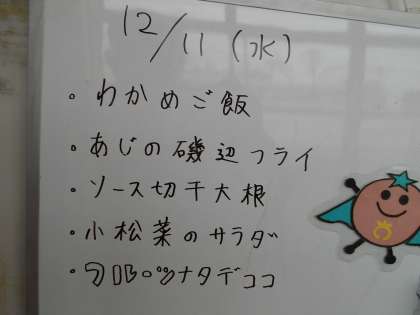 12/11(水)
・わかめご飯
・あじの磯辺フライ
・ソース切干大根
・小松菜のサラダ
・フルーツナタデココ